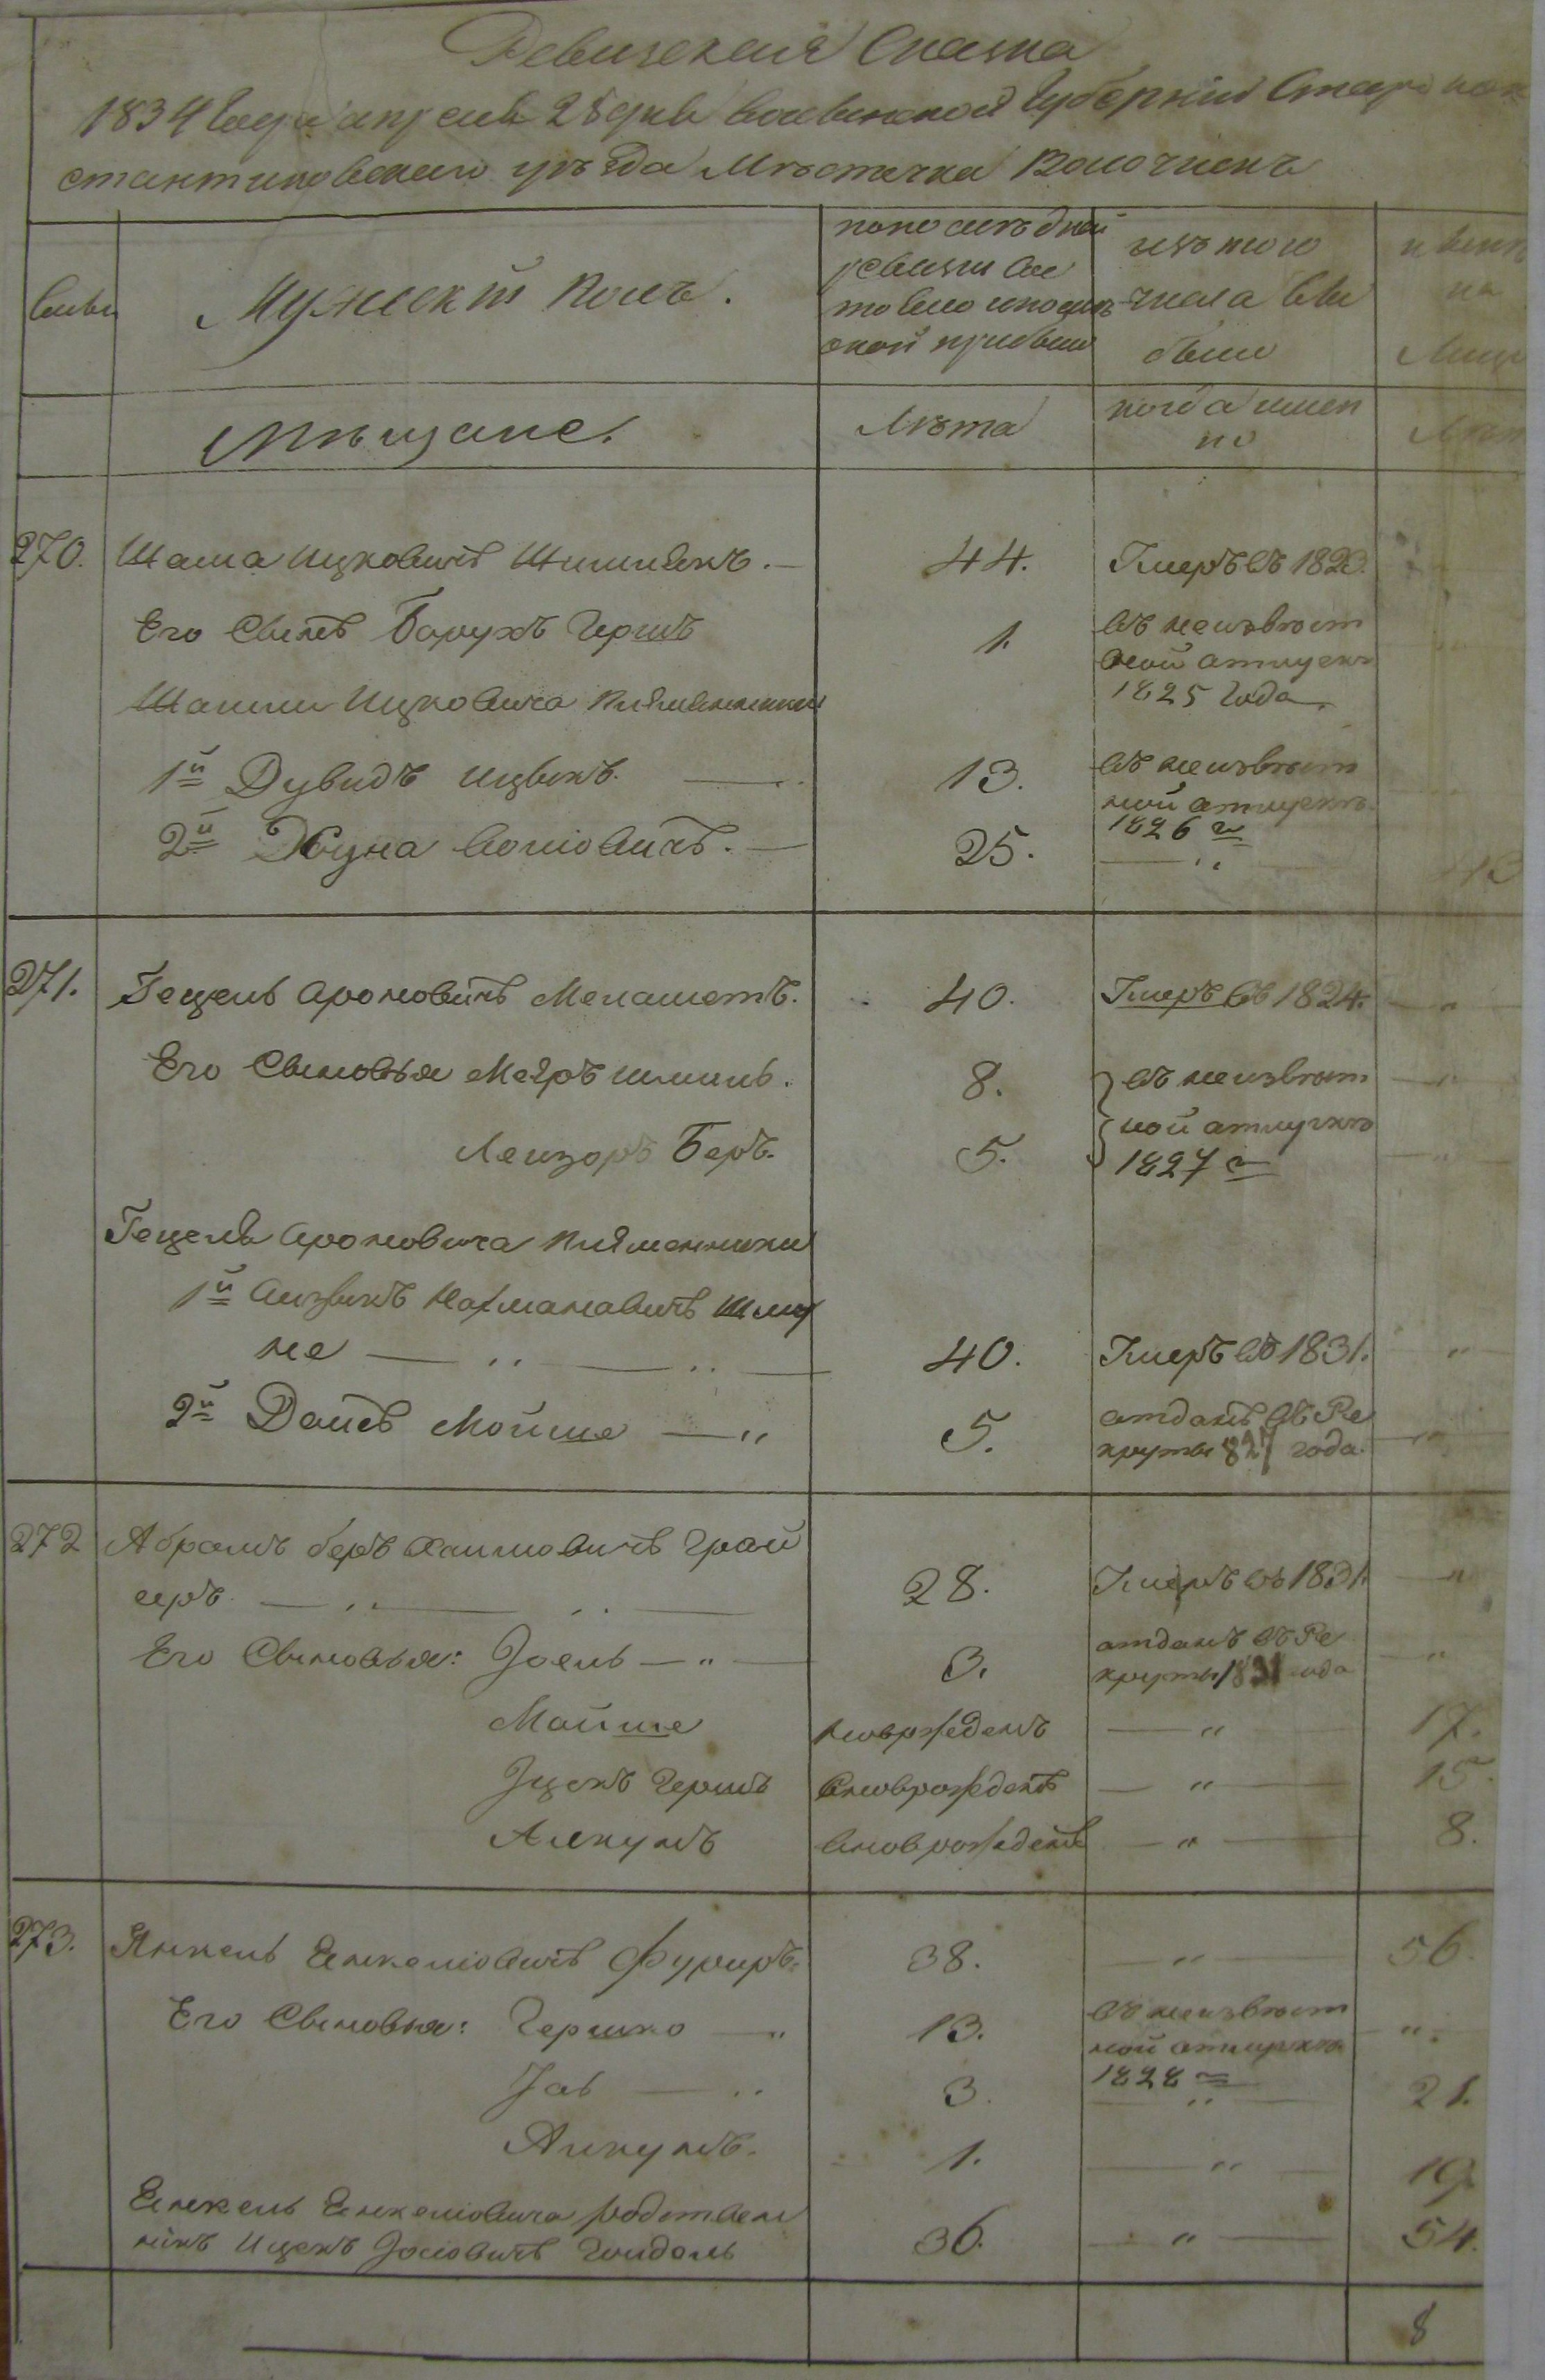 Ревизская Сказка
1834 Года апреля 25 дня Волынской Губернии Старокон
стантиновского уѣзда Мѣстечка Волочискъ
Мужескій полъ.
по последней
ревизіи со
стояло и после
оной прибыло
изъ того
числа вы
было
нынѣ
на
Лицо
Мѣщане.
Лѣта
когда имен
но
Лѣта
270. Шама Ицковичъ 44. Умеръ въ 1823.
Его Сынъ Борухъ Гершъ 1. въ неизвѣст
ной отлучкѣ
1825 Года
Шамы Ицковича племянники
1й Дувидъ Ицыкъ. — 13. въ неизвѣст
ной отлучкѣ
1826 г
2й Хуна — 25. — „ —
271. Гецель Ароновичъ 40. Умеръ въ 1824. — „
Его Сыновья Меэръ 8. въ неизвѣст — „
ной отлучкѣ
Лейзоръ Беръ. 5. 1827 г — „
Гецеля Ароновича племянники
1й Айзыкъ Нахмановичъ Шму
не — „ — „ — 40. Умеръ въ 1831. „
2й Мойше — „ 5. отданъ въ Ре
круты 827 года. — „
272 Абрамъ беръ Хаимовичъ Грай
серъ — „ — „ — 28. Умеръ въ 1831. — „
Его Сыновья: Іоель — „ — 3. отданъ въ Ре
круты 1831 года — „
Мойше новрожденъ — „ — 17.
Іцекъ Гершъ вноврожденъ — „ — 15.
Янкумъ вноврожденъ — „ — 8.
273. Янкель Енкеліовичъ Фуриръ. 38. — „ — 56.
Его Сыновья: Гершко — „ 13. въ неизвѣст
ной отлучкѣ
1828 г „
Іовъ — „ 3. — „ — 21.
Янкумъ. 1. — „ — 19
Енкель Енкеліовича родствен
никъ Ицекъ Іосіовичъ 36. — „ — 54.
8